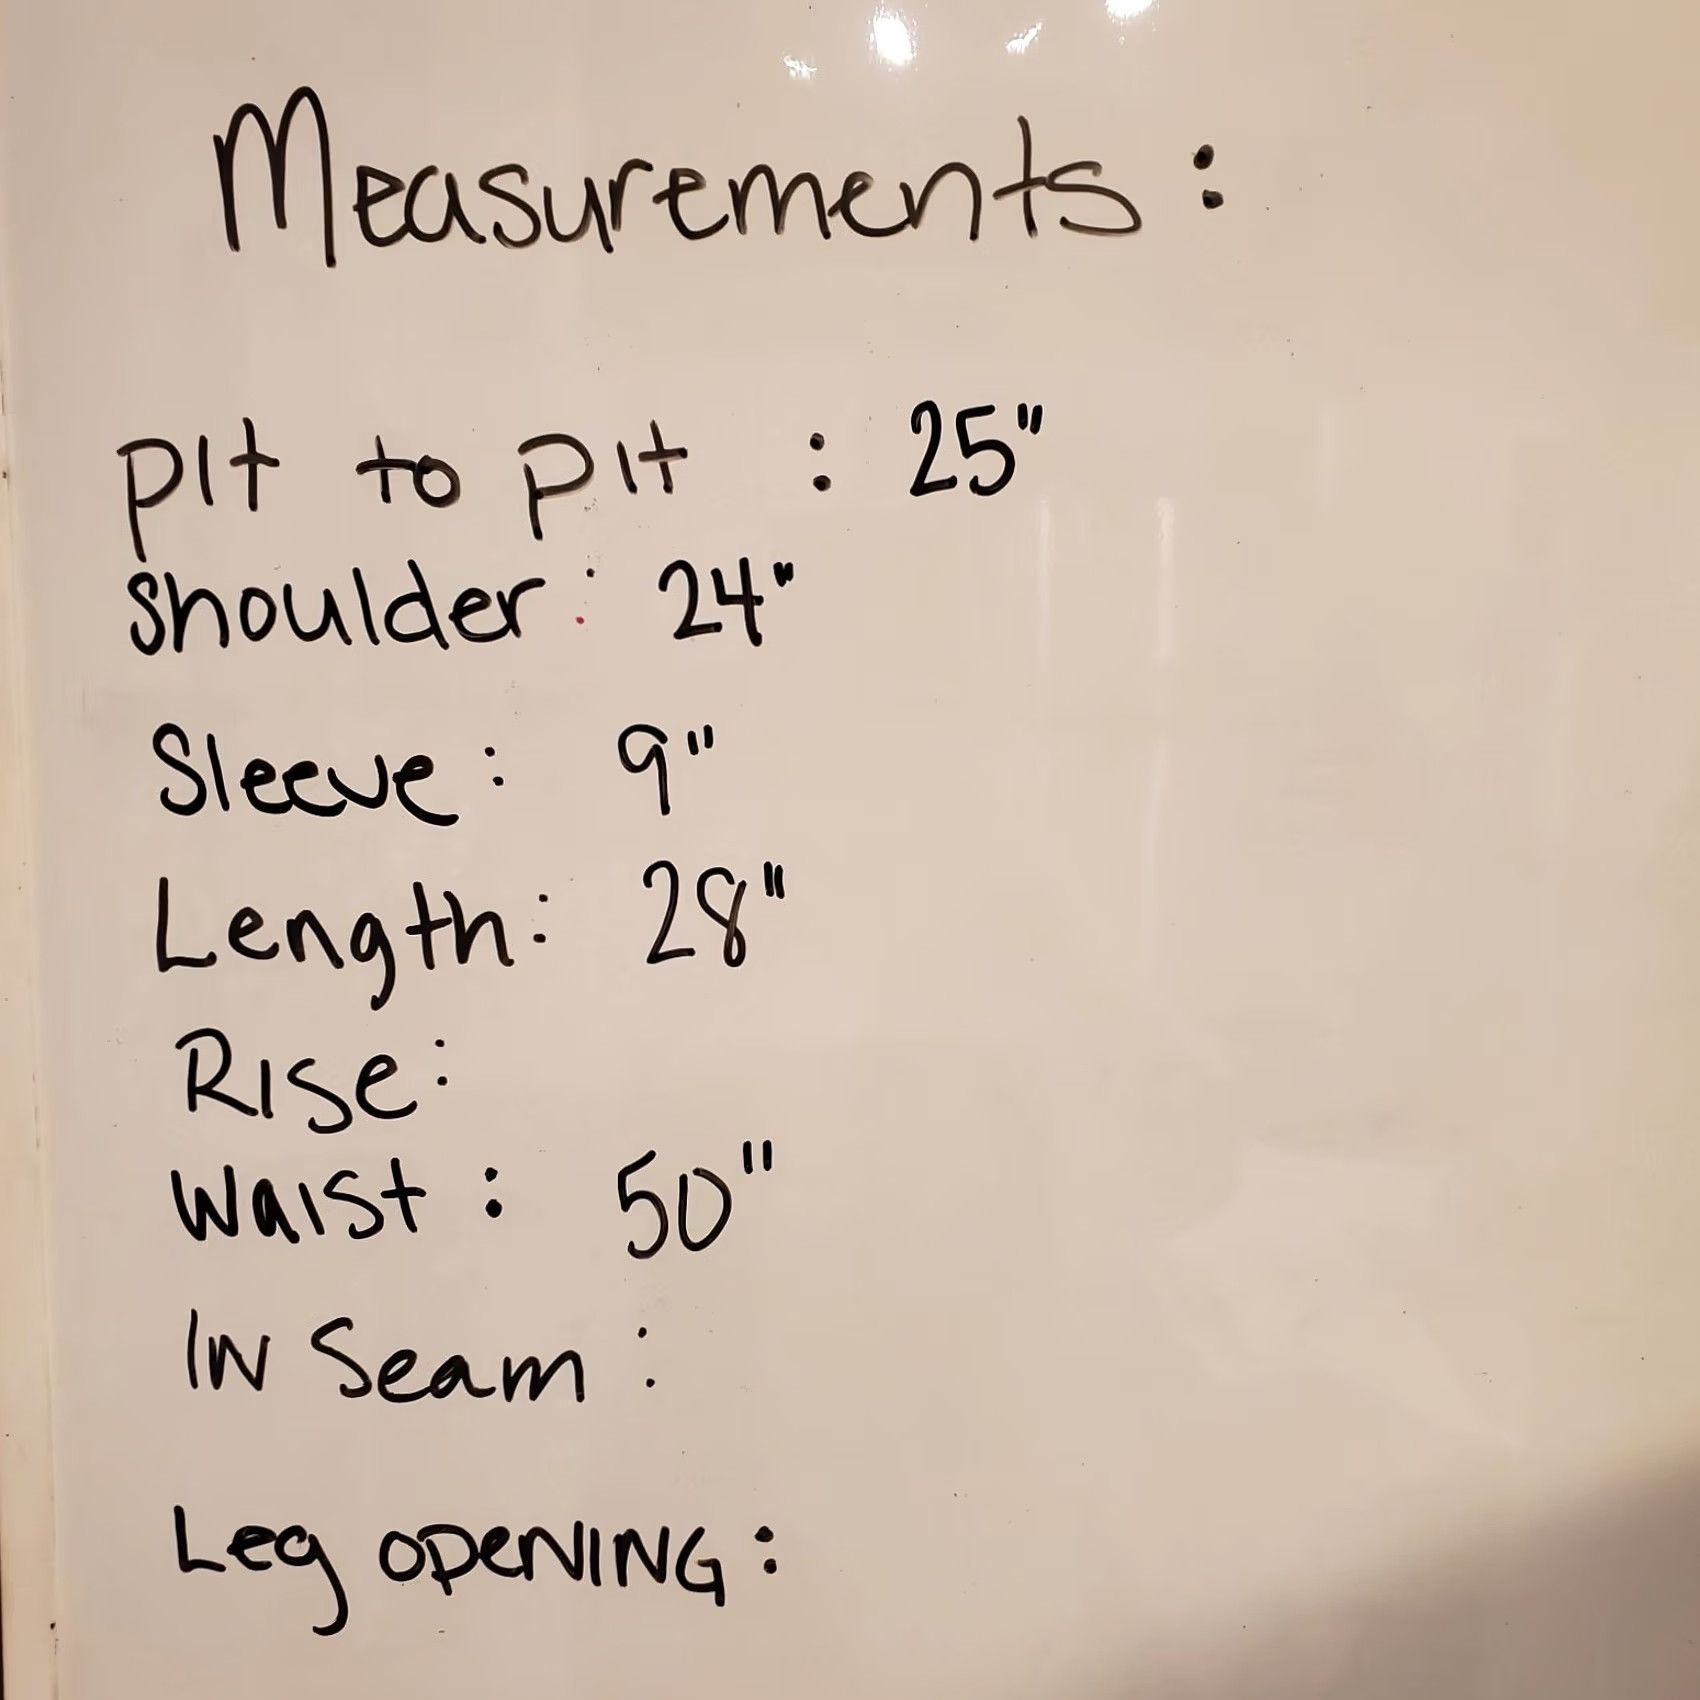 Measurements:
pit to pit : 25"
shoulder: 24"
Sleeve: 9"
Length: 28"
Rise:
Waist: 50"
IN Seam:
Leg OPENING: